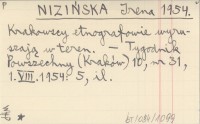 P
NIZIŃSKA Irena 1954.
Krakowscy etnografowie wyru-
szają w teren. – Tygodnik
Powszechny (Kraków) 10, nr 31,
1.VIII.1954. 5, il.